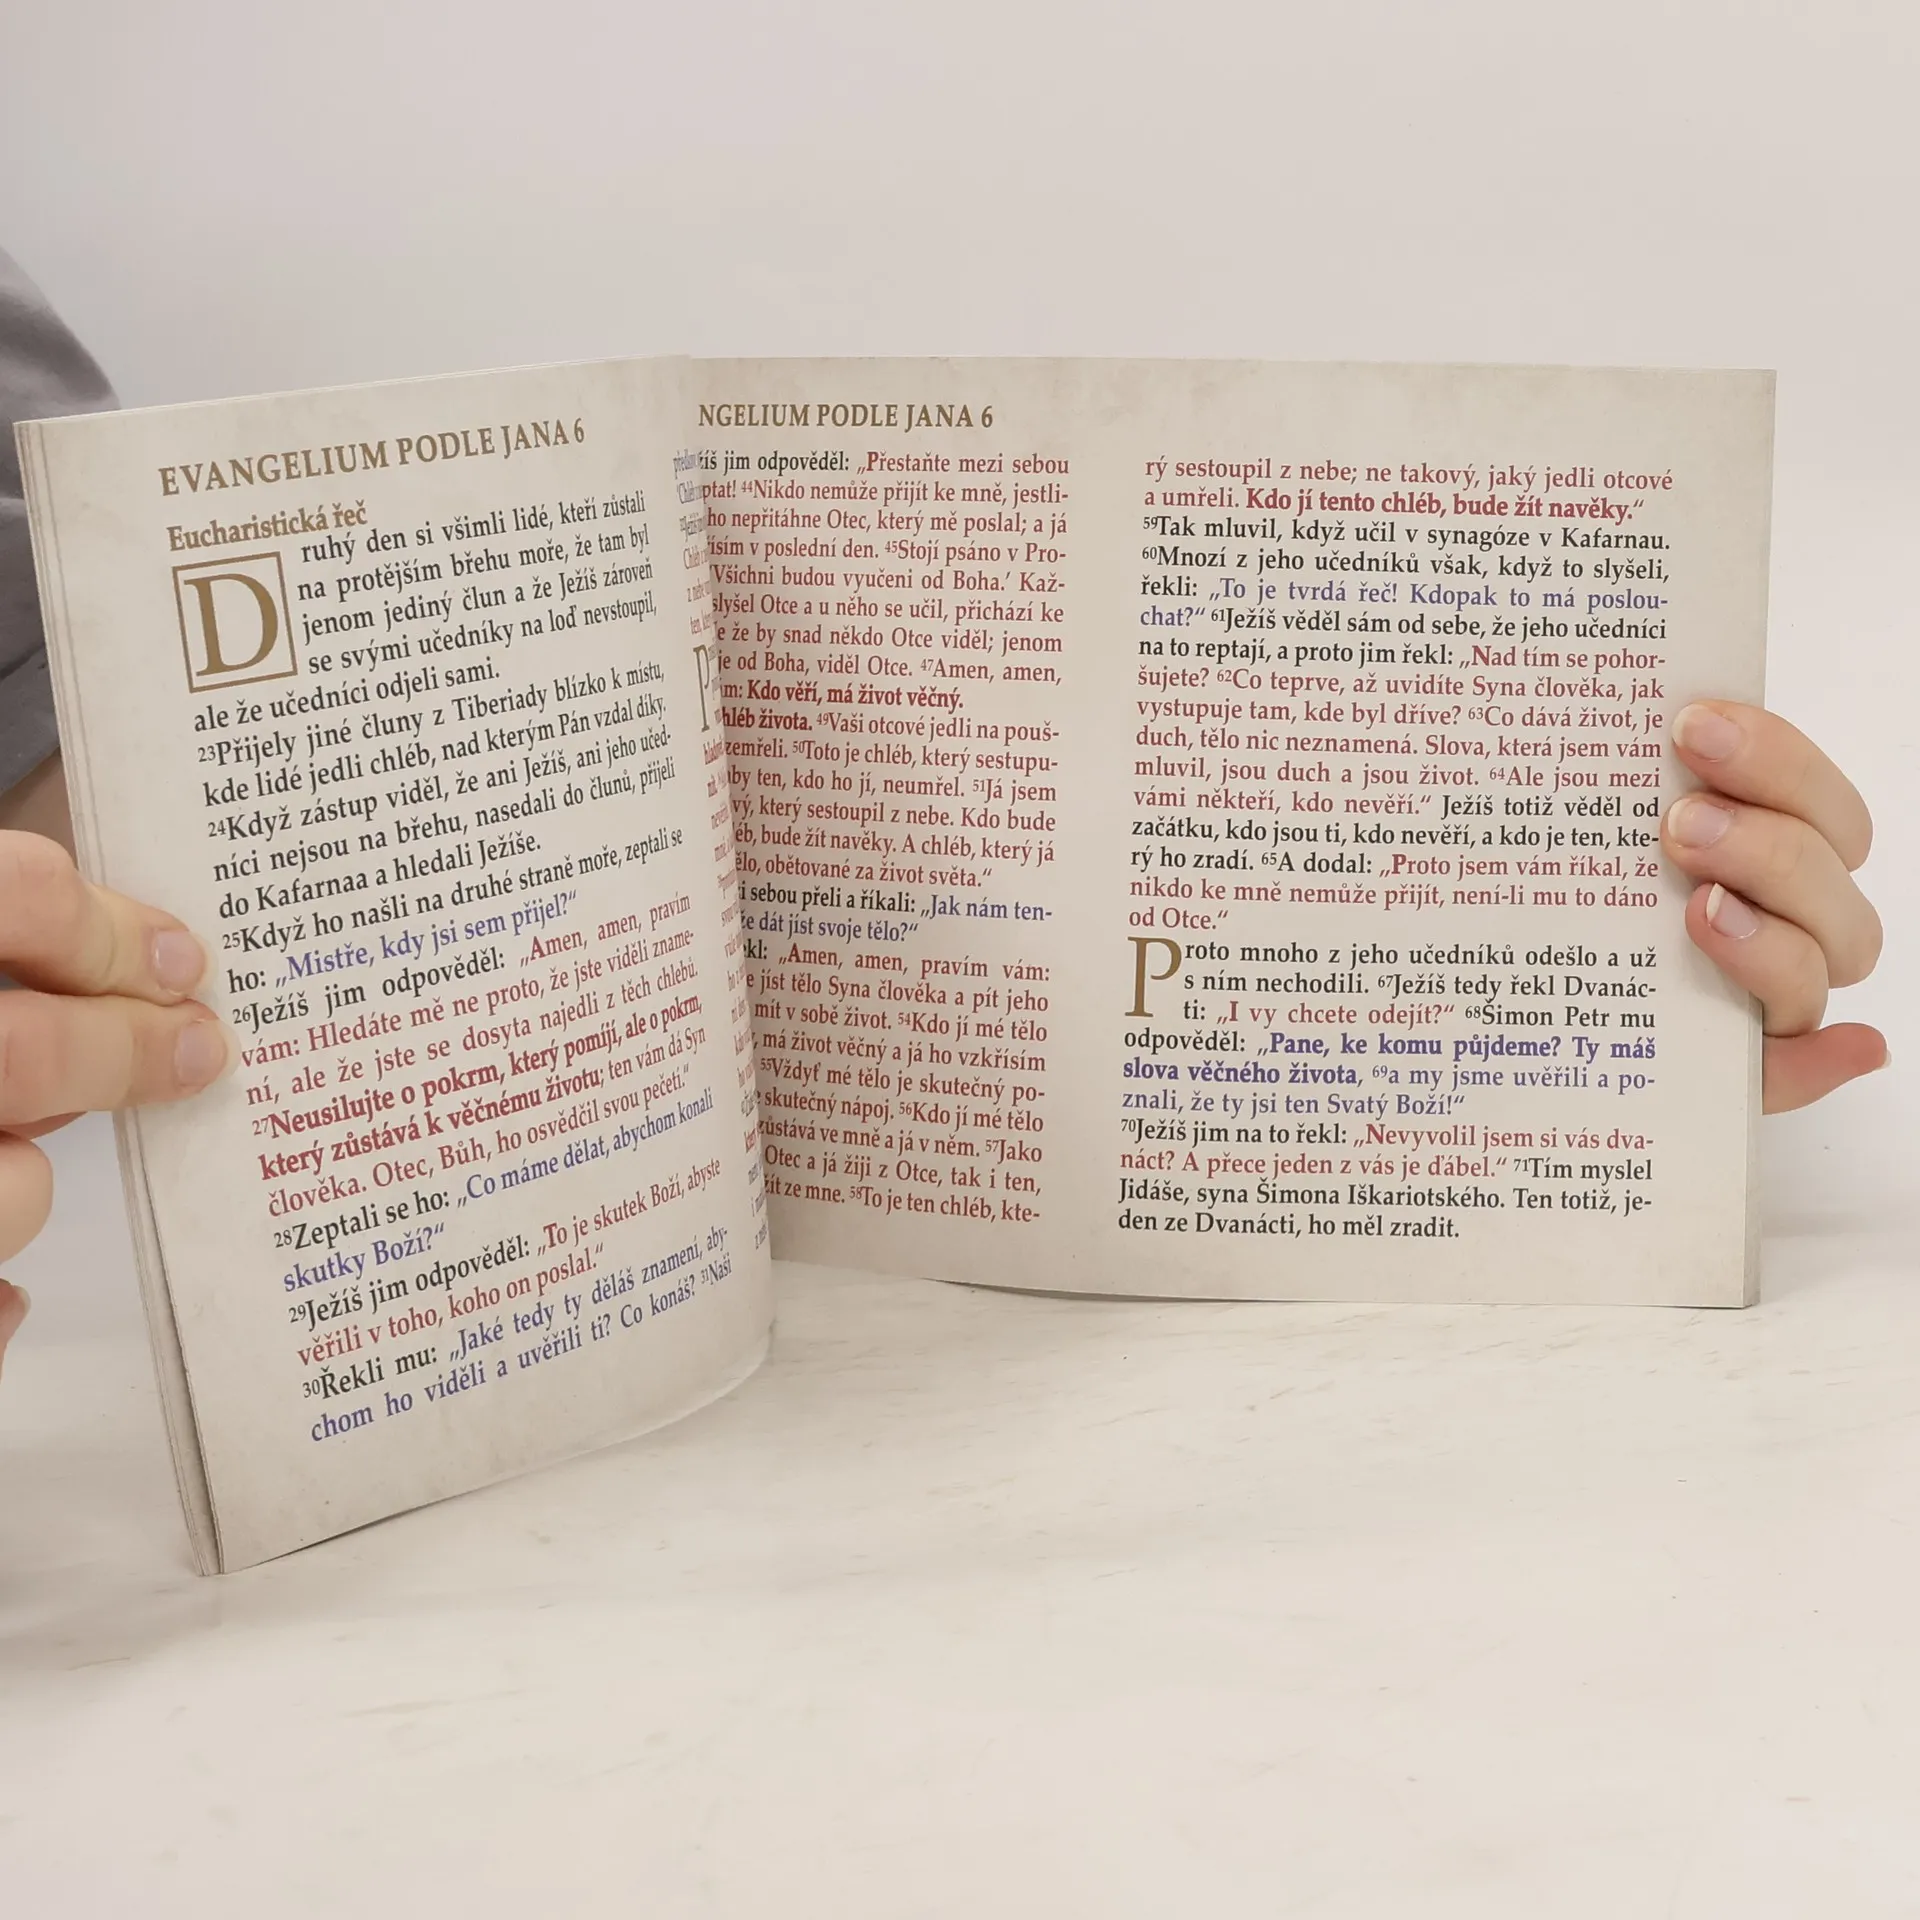 EVANGELIUM PODLE JANA 6
Eucharistická řeč
Druhý den si všimli lidé, kteří zůstali
na protějším břehu moře, že tam byl
jenom jediný člun a že Ježíš zároveň
se svými učedníky na loď nevstoupil,
ale že učedníci odjeli sami.
23Přijely jiné čluny z Tiberiady blízko k místu,
kde lidé jedli chléb, nad kterým Pán vzdal díky.
24Když zástup viděl, že ani Ježíš, ani jeho učed-
níci nejsou na břehu, nasedali do člunů, přijeli
do Kafarnaa a hledali Ježíše.
25Když ho našli na druhé straně moře, zeptali se
ho: „Mistře, kdy jsi sem přijel?“
26Ježíš jim odpověděl: „Amen, amen, pravím
vám: Hledáte mě ne proto, že jste viděli zname-
ní, ale že jste se dosyta najedli z těch chlebů.
27Neusilujte o pokrm, který pomíjí, ale o pokrm,
který zůstává k věčnému životu; ten vám dá Syn
člověka. Otec, Bůh, ho osvědčil svou pečetí.“
28Zeptali se ho: „Co máme dělat, abychom konali
skutky Boží?“
29Ježíš jim odpověděl: „To je skutek Boží, abyste
věřili v toho, koho on poslal.“
30Řekli mu: „Jaké tedy ty děláš znamení, aby-
chom ho viděli a uvěřili ti? Co konáš? 31Naši
NGELIUM PODLE JANA 6
jim odpověděl: „Přestaňte mezi sebou
ptat! 44Nikdo nemůže přijít ke mně, jestli-
ho nepřitáhne Otec, který mě poslal; a já
v poslední den. 45Stojí psáno v Pro-
‚Všichni budou vyučeni od Boha.‘ Kaž-
slyšel Otce a u něho se učil, přichází ke
že by snad někdo Otce viděl; jenom
je od Boha, viděl Otce. 47Amen, amen,
Kdo věří, má život věčný.
života. 49Vaši otcové jedli na pouš-
zemřeli. 50Toto je chléb, který sestupu-
aby ten, kdo ho jí, neumřel. 51Já jsem
který sestoupil z nebe. Kdo bude
bude žít navěky. A chléb, který já
obětované za život světa.“
sebou přeli a říkali: „Jak nám ten-
dát jíst svoje tělo?“
„Amen, amen, pravím vám:
jíst tělo Syna člověka a pít jeho
mít v sobě život. 54Kdo jí mé tělo
má život věčný a já ho vzkřísím
55Vždyť mé tělo je skutečný po-
skutečný nápoj. 56Kdo jí mé tělo
zůstává ve mně a já v něm. 57Jako
Otec a já žiji z Otce, tak i ten,
ze mne. 58To je ten chléb, kte-
rý sestoupil z nebe; ne takový, jaký jedli otcové
a umřeli. Kdo jí tento chléb, bude žít navěky.“
59Tak mluvil, když učil v synagóze v Kafarnau.
60Mnozí z jeho učedníků však, když to slyšeli,
řekli: „To je tvrdá řeč! Kdopak to má poslou-
chat?“ 61Ježíš věděl sám od sebe, že jeho učedníci
na to reptají, a proto jim řekl: „Nad tím se pohor-
šujete? 62Co teprve, až uvidíte Syna člověka, jak
vystupuje tam, kde byl dříve? 63Co dává život, je
duch, tělo nic neznamená. Slova, která jsem vám
mluvil, jsou duch a jsou život. 64Ale jsou mezi
vámi někteří, kdo nevěří.“ Ježíš totiž věděl od
začátku, kdo jsou ti, kdo nevěří, a kdo je ten, kte-
rý ho zradí. 65A dodal: „Proto jsem vám říkal, že
nikdo ke mně nemůže přijít, není-li mu to dáno
od Otce.“
Proto mnoho z jeho učedníků odešlo a už
s ním nechodili. 67Ježíš tedy řekl Dvanác-
ti: „I vy chcete odejít?“ 68Šimon Petr mu
odpověděl: „Pane, ke komu půjdeme? Ty máš
slova věčného života, 69a my jsme uvěřili a po-
znali, že ty jsi ten Svatý Boží!“
70Ježíš jim na to řekl: „Nevyvolil jsem si vás dva-
náct? A přece jeden z vás je ďábel.“ 71Tím myslel
Jidáše, syna Šimona Iškariotského. Ten totiž, je-
den ze Dvanácti, ho měl zradit.